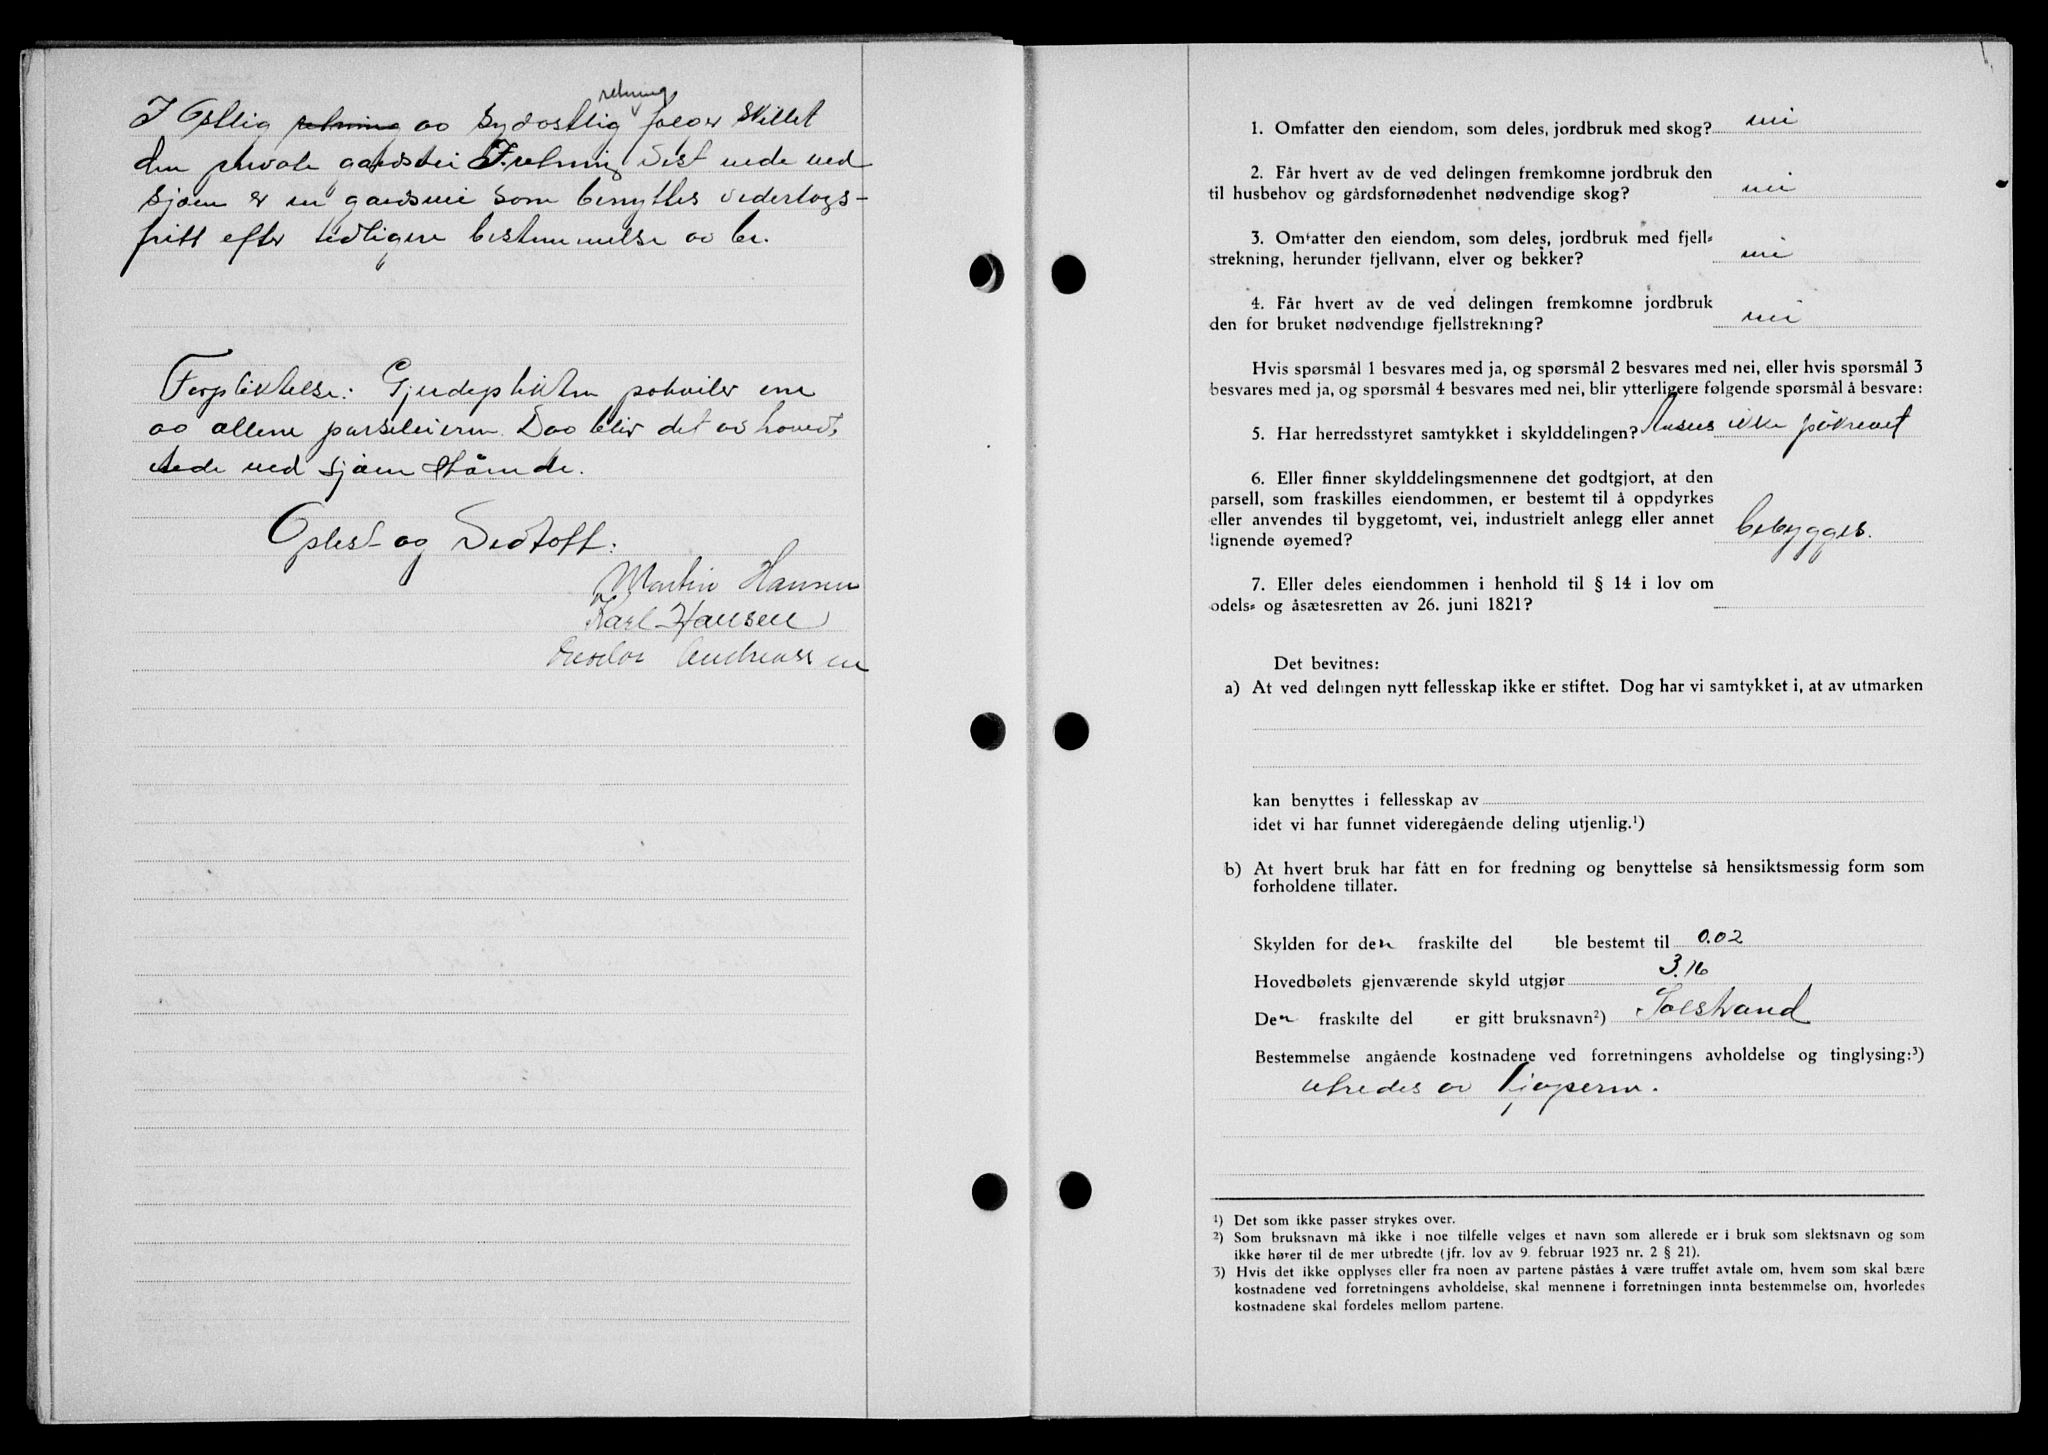 retning
I Østlig retning og Sydostlig følger skillet
den private gardsvei I retning Vest nede ved
sjøen er en gardsvei som benyttes vederlags-
fritt efter tidligere bestemmelse av br.
Forpliktelse: Gjerdeplikten påhviler ene
og allene parseleieren. Dog blir det av hoved-
nede ved sjøen
Oplest og Vedtatt:
Martin Hansen
Karl Hansen
Andreassen
1. Omfatter den eiendom, som deles, jordbruk med skog? nei
2. Får hvert av de ved delingen fremkomne jordbruk den
til husbehov og gårdsfornødenhet nødvendige skog? nei
3. Omfatter den eiendom, som deles, jordbruk med fjell-
strekning, herunder fjellvann, elver og bekker? nei
4. Får hvert av de ved delingen fremkomne jordbruk
den for bruket nødvendige fjellstrekning? nei
Hvis spørsmål 1 besvares med ja, og spørsmål 2 besvares med nei, eller hvis spørsmål 3
besvares med ja, og spørsmål 4 besvares med nei, blir ytterligere følgende spørsmål å besvare:
5. Har herredsstyret samtykket i skylddelingen? Ansees ikke påkrevet
6. Eller finner skylddelingsmennene det godtgjort, at den
parsell, som fraskilles eiendommen, er bestemt til å oppdyrkes
eller anvendes til byggetomt, vei, industrielt anlegg eller annet
lignende øyemed? bebygges.
7. Eller deles eiendommen i henhold til § 14 i lov om
odels- og åsætesretten av 26. juni 1821?
Det bevitnes:
a) At ved delingen nytt fellesskap ikke er stiftet. Dog har vi samtykket i, at av utmarken
kan benyttes i fellesskap av
idet vi har funnet videregående deling utjenlig.¹)
b) At hvert bruk har fått en for fredning og benyttelse så hensiktsmessig form som
forholdene tillater.
Skylden for den fraskilte del ble bestemt til 0.02
Hovedbølets gjenværende skyld utgjør 3.16
Den fraskilte del er gitt bruksnavn²) Solstrand
Bestemmelse angående kostnadene ved forretningens avholdelse og tinglysing:³)
utredes av kjøperen.
¹) Det som ikke passer strykes over.
²) Som bruksnavn må ikke i noe tilfelle velges et navn som allerede er i bruk som slektsnavn og som
ikke hører til de mer utbredte (jfr. lov av 9. februar 1923 nr. 2 § 21).
3) Hvis det ikke opplyses eller fra noen av partene påståes å være truffet avtale om, hvem som skal bære
kostnadene ved forretningens avholdelse, skal mennene i forretningen innta bestemmelse om, hvorledes
kostnadene skal fordeles mellom partene.